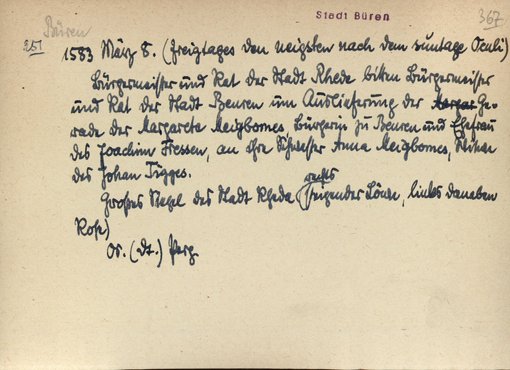 Büren
Stadt Büren
367
251
1583 März 8. (freigtages den neigsten nach dem suntage Oculi)
Bürgermeister und Rat der Stadt Rhede bitten Bürgermeister
und Rat der Stadt Beuren um Auslieferung der Ge-
rade der Margarete Meigbomes, Bürgerin zu Beuren und Ehefrau
des Joachim Fressen, an ihre Schwester Anna Meigbomes, Witwe
des Johan Tigges.
Großes Siegel der Stadt Rheda (rechts
steigender Löwe, links daneben
Rose)
Or. (dt.) Perg.